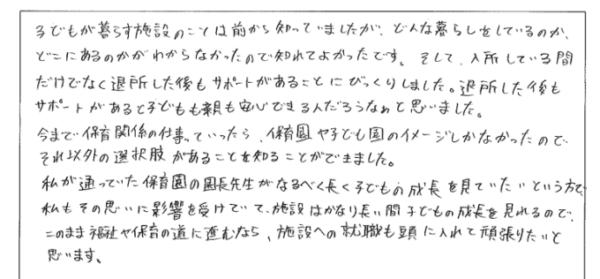 子どもが暮らす施設のことは前から知っていましたが、どんな暮らしをしているのか、
どこにあるのかがわからなかったので知れてよかったです。そして、入所している間
だけでなく退所した後もサポートがあることにびっくりしました。退所した後も
サポートがあると子どもも親も安心できる人だろうなぁと思いました。
今まで保育関係の仕事っていったら、保育園や子ども園のイメージしかなかったので
それ以外の選択肢があることを知ることができました。
私が通っていた保育園の園長先生がなるべく長く子どもの成長を見ていたいという方で
私もその思いに影響を受けていて、施設はかなり長い間子どもの成長を見れるので、
このまま福祉や保育の道に進むなら、施設への就職も頭に入れて頑張りたいと
思います。